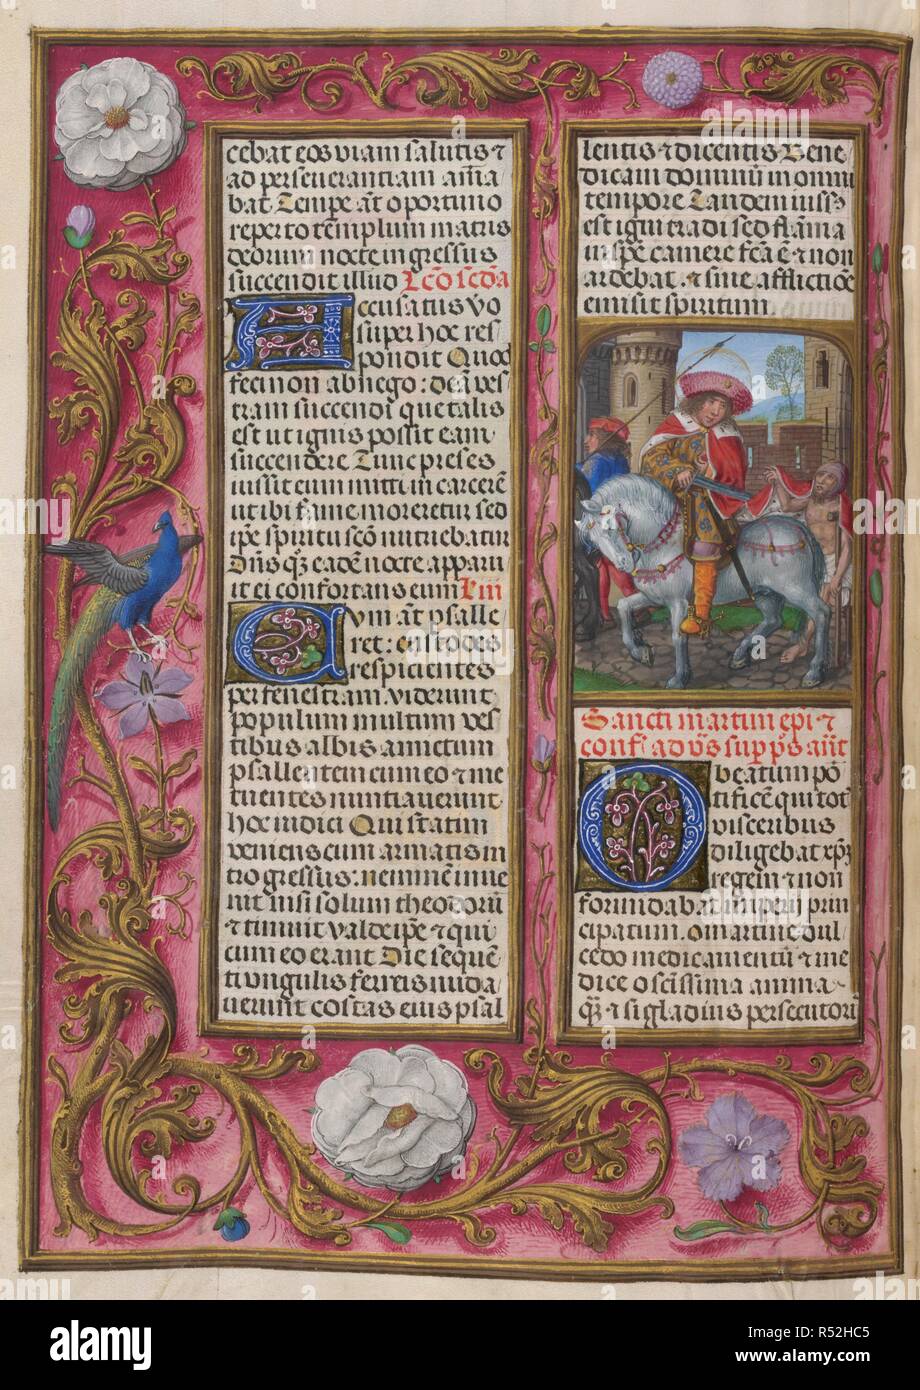 cebat eos viam salutis ⁊
ad perseverantiam ama
bat Tempe at oportuno
reperto templum matris
deorum nocte ingressus
succendit illud Lco scda
Accusatus vo
super hoc res
pondit Quod
feci non abnego: deam ves
tram succendi que talis
est ut ignis possit eam
succendere Tunc preses
iussit eum mitti in carcerem
ut ibi fame moreretur sed
spiritu nutriebatur
eadem nocte apparu
it ei confortans eum
Cum at psalle
ret: custodes
respicientes
per fenestram. viderunt
populum multum ves
tibus albis amictum
psallentem cum eo ⁊ me
tuentes nuntiaverunt
hoc iudici Qui statim
veniens cum armatis in
trogressus: neminem inve
nit nisi solum theodorum
⁊ timuit valde ipse ⁊ qui
cum eo erant Die sequen
ti ungulis ferreis nuda
verunt costas eius psal
lentis ⁊ dicentis Bene
dicam dominum in omni
tempore Tandem iussus
est igni tradi sed flamma
in spe camere fca e ⁊ non
ardebat. ⁊ sine afflictione
emisit spiritum
Sancti martini epi ⁊
conf. ad vs supps ant
O beatum pon
tificem qui totis
visceribus
diligebat xpm
regem ⁊ non
formidabat imperii prin
cipatum. o martine dul
cedo medicamentum ⁊ me
dice o scissima anima
⁊ si gladius persecutoris
alamy
Image ID: R52HC5
www.alamy.com